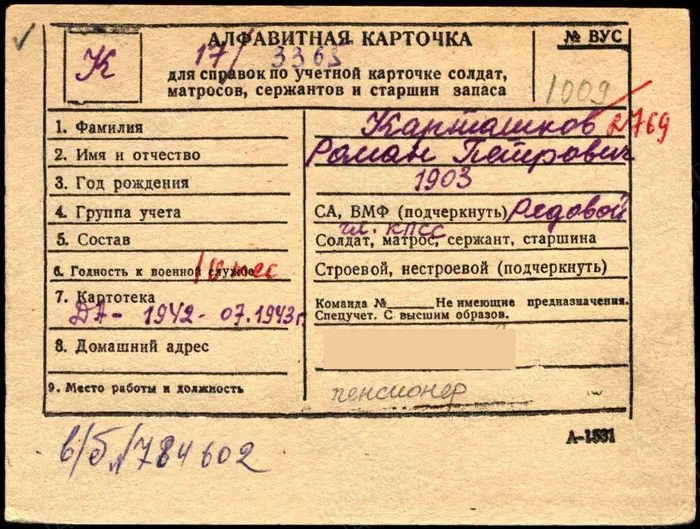 АЛФАВИТНАЯ КАРТОЧКА
К 17/3365
для справок по учетной карточке солдат,
матросов, сержантов и старшин запаса
№ ВУС
1009
1. Фамилия Карташков 2769
2. Имя и отчество Роман Петрович
3. Год рождения 1903
4. Группа учета СА, ВМФ (подчеркнуть) Рядовой
чл. КПСС
5. Состав Солдат, матрос, сержант, старшина
6. Годность к военной службе Строевой, нестроевой (подчеркнуть)
7. Картотека Команда №______ Не имеющие предназначения.
Спецучет. С высшим образов.
ДА - 1942 - 07.1943г.
8. Домашний адрес
9. Место работы и должность пенсионер
А-1531
в/б 784602